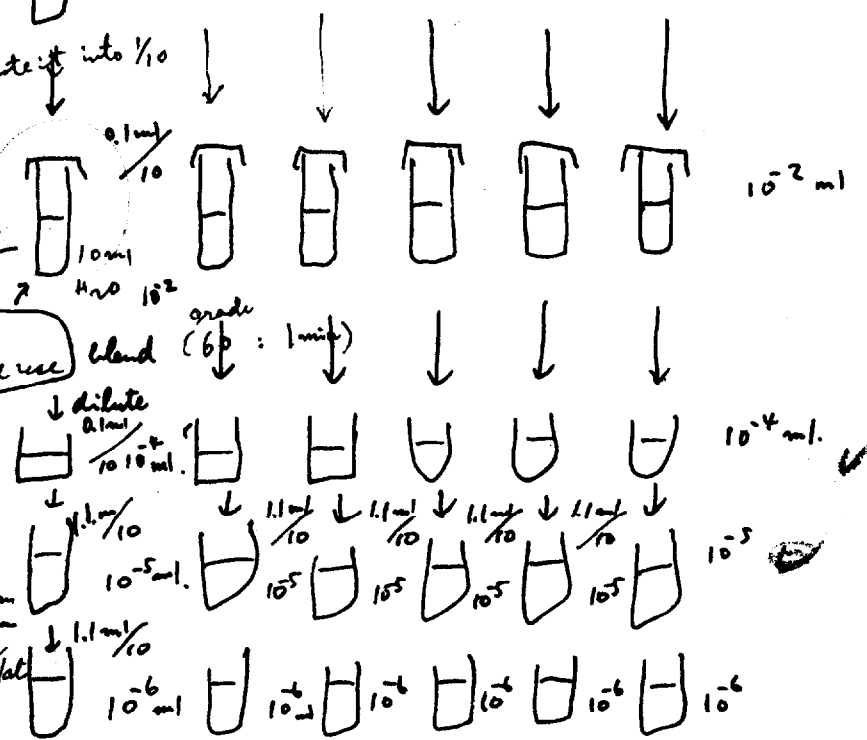 into 1/10
0.1ml/10
10⁻² ml
10ml
H₂O 10⁻²
grade
use blend (60 : 1min)
dilute
0.1ml/10 10⁻⁴ ml. 10⁻⁴ ml.
1.1m/10 1.1ml/10 1.1ml/10 1.1ml/10 1.1ml/10
10⁻⁵ ml. 10⁻⁵ 10⁻⁵ 10⁻⁵ 10⁻⁵ 10⁻⁵
1.1ml/10
10⁻⁶ ml 10⁻⁶ ml 10⁻⁶ 10⁻⁶ 10⁻⁶ 10⁻⁶